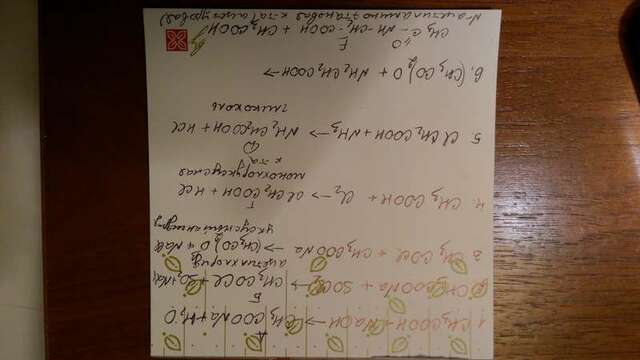 1. CH3COOH + NaOH → CH3COONa + H2O
A
CH3COONa + SOCl2 → CH3COCl + SO2 + NaCl
Б
ацетилхлорид
3. CH3COCl + CH3COONa → (CH3CO)2O + NaCl
уксусный ангидрид
4. CH3COOH + Cl2 → ClCH2COOH + HCl
Г
монохлоруксусная к-та
5. ClCH2COOH + NH3 → NH2CH2COOH + HCl
Ф
гликоколь
6. (CH3CO)2O + NH2CH2COOH →
E
CH3C=O - NH-CH2-COOH + CH3COOH
N-ацетиламиноэтановая к-та